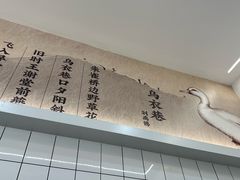 乌衣巷
刘禹锡
朱雀桥边野草花
乌衣巷口夕阳斜
旧时王谢堂前燕
飞入寻